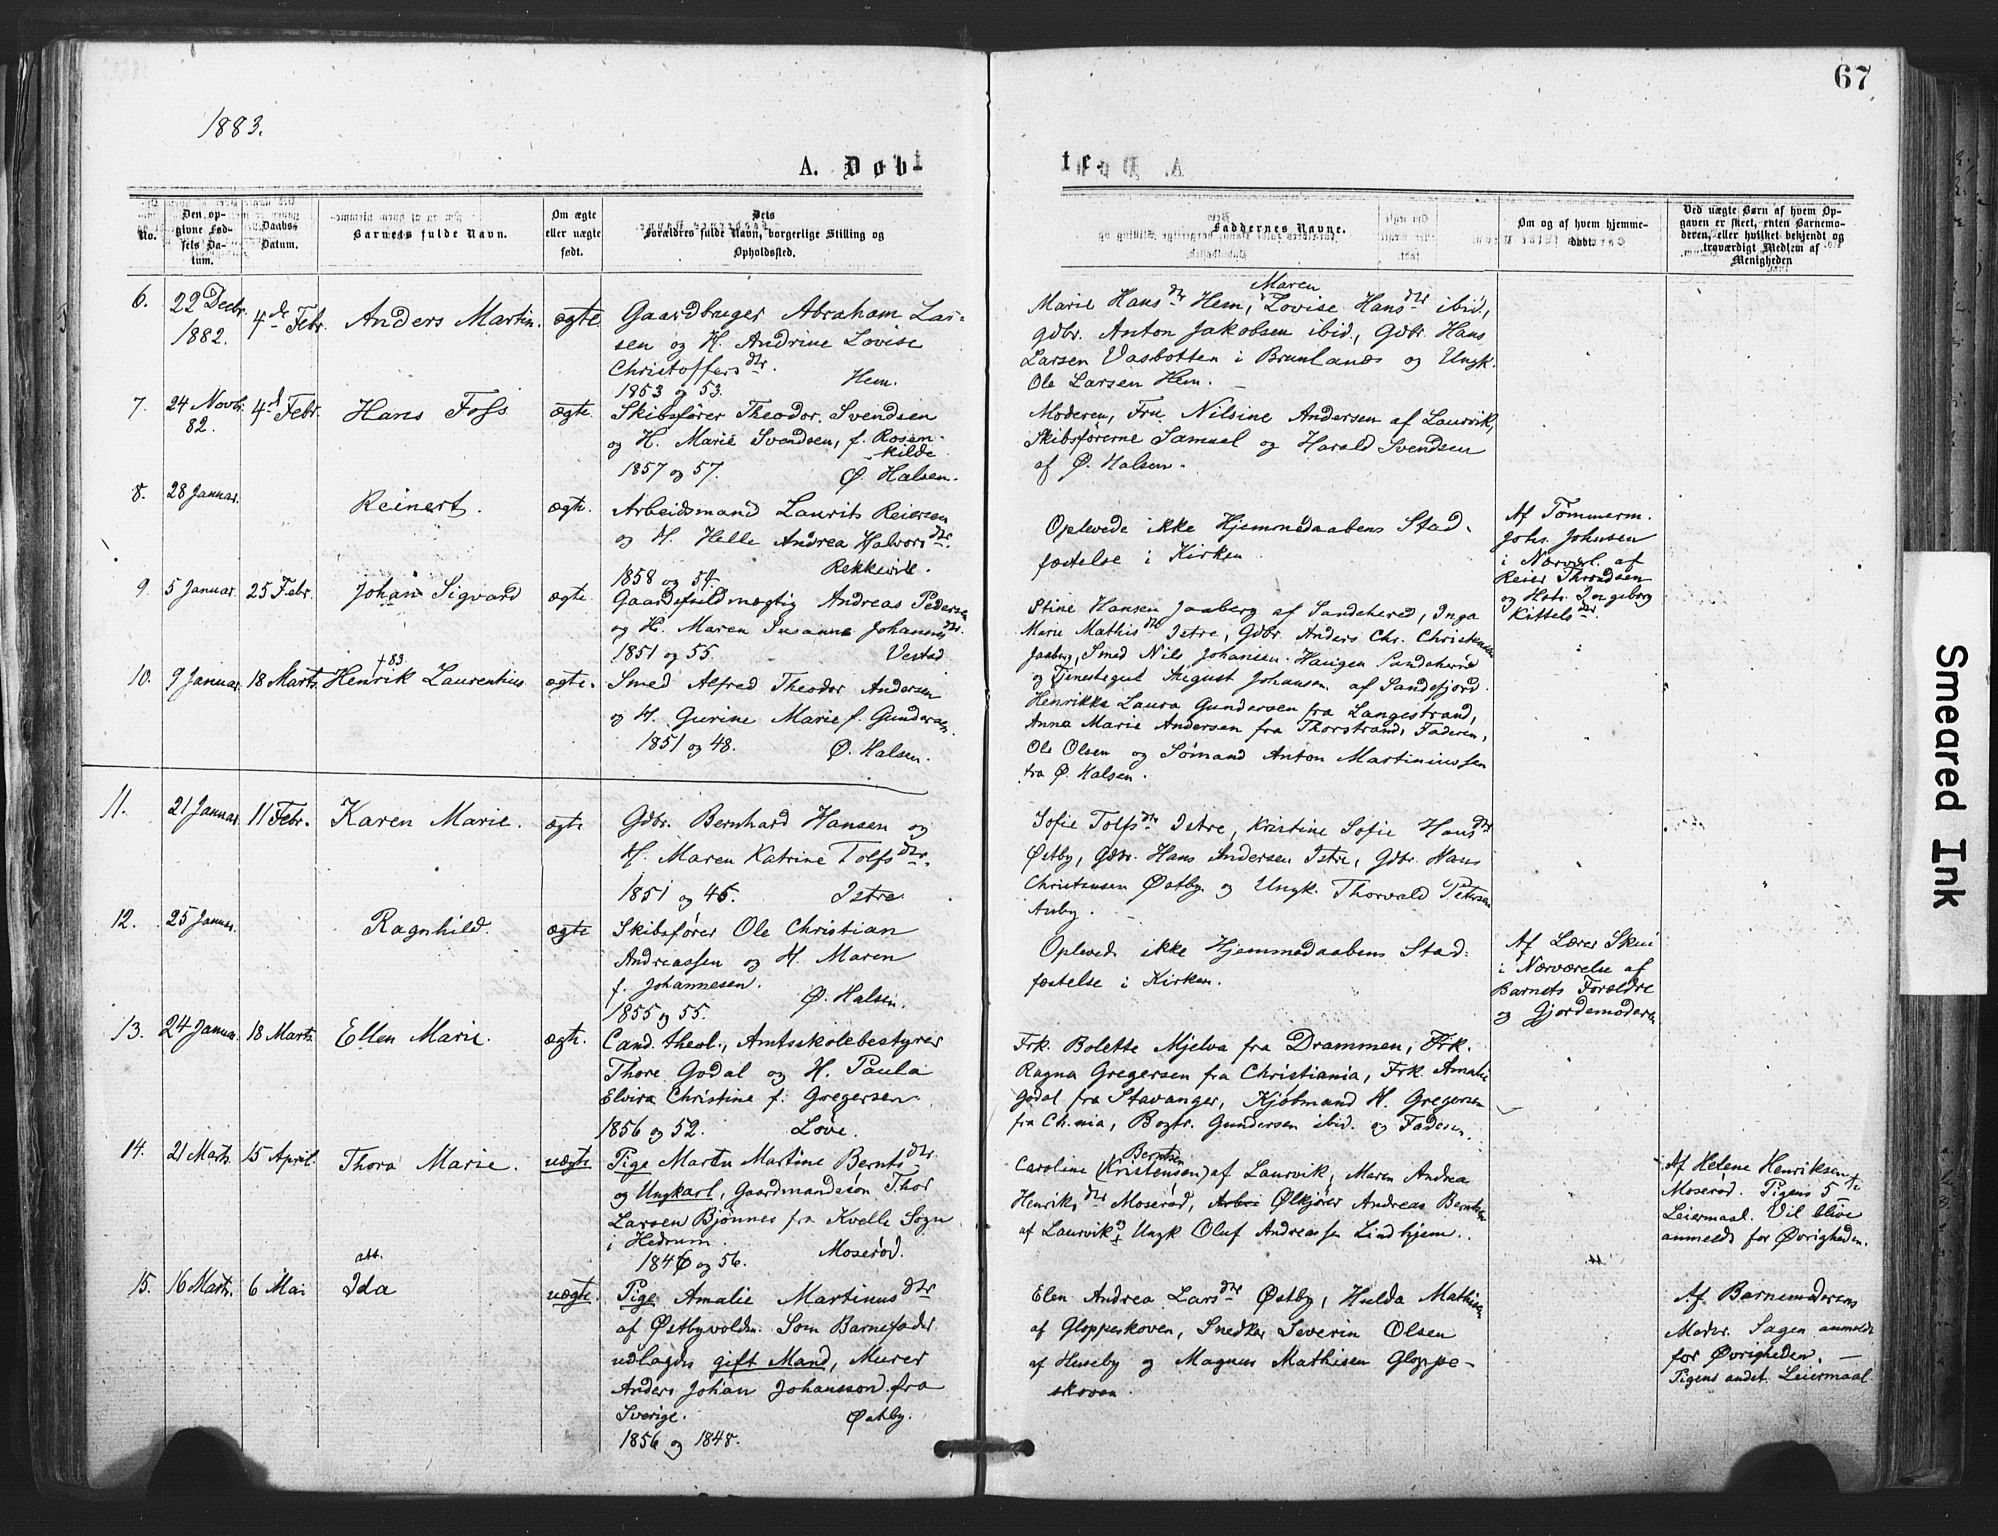 67
1883.
A. Døbt
te
No.
Den opgivne Fødsels Datum.
Daabs Datum.
Barnets fulde Navn.
Om ægte eller uægte født.
Dets Forældres fulde Navn, borgerlige Stilling og Opholdssted.
Faddernes Navne.
Om og af hvem hjemmedøbt.
Ved uægte Børn af hvem Opgaven er skeet, enten Barnemoderen, eller hvilket bekjendt og troværdigt Medlem af Menigheden
6.
22 Decbr.
1882.
4de Febr.
Anders Martin.
ægte
Gaardbruger Abraham Lar-
sen og H. Andrine Lovise
Christoffersdtr.
Hem.
1853 og 53.
Maren
Marie Hansdtr Hem, Lovise Hansdtr ibid.,
gdbr. Anton Jakobsen ibid, Gdbr. Hans
Larsen Vasbotten i Brunlanæs og Ungk.
Ole Larsen Hem.
7.
24 Novbr.
82.
4de Febr.
Hans Foss
ægte
Skibsfører Theodor Svendsen
og H. Marie Svendsen, f. Rosen-
kilde
1857 og 57.
Ø. Halsen.
Moderen, Fru Nilsine Andersen af Laurvik,
Skibsførerne Samuel og Harald Svendsen
af Ø. Halsen.
8.
28 Januar.
Reinert.
ægte.
Arbeidsmand Laurits Reiersen
og H. Helle Andrea Halvorsdtr.
Rekkevik.
1858 og 54.
Oplevede ikke Hjemmedaabens Stad-
fæstelse i Kirken
Af Tømmerm.
Johs. Johnsen
i Nærværl. af
Reier Throndsen
og Hstr. Ingeborg
Kittelsdtr.
9.
5 Januar.
25 Febr.
Johan Sigvard
ægte
Gaardsfuldmægtig Andreas Pedersen
og H. Maren Susanne Johannesdtr.
1851 og 55.
Vestad
Stine Hansen Jaaberg af Sandehered, Inga
Marie Mathisdtr Istre, Gdbr. Anders Chr. Christensen
Jaaberg, Smed Nils Johansen Haugen Sandeherred
og Tjenestegut August Johansen af Sandefjord.
10.
9 Januar.
18 Marts
+ 83.
Henrik Laurentius
ægte.
Smed Alfred Theodor Andersen
og H. Gurine Marie f. Gundersen.
1851 og 48.
Ø. Halsen.
Henrikke Laura Gundersen fra Langestrand,
Anna Marie Andersen fra Thorstrand, Faderen,
Ole Olsen og Sømand Anton Martiniussen
fra Ø. Halsen.
11.
21 Januar
11 Febr.
Karen Marie.
ægte
Gdbr. Bernhard Hansen og
H. Maren Katrine Tolfsdtr.
1851 og 46.
Istre
Sofie Tolfsdtr Istre, Kristine Sofie Hansdtr
Østby, Gdbr. Hans Andersen Istre, Gdbr. Hans
Christensen Østby og Ungk. Thorvald Petersen
Auby.
12.
25 Januar.
Ragnhild.
ægte
Skibsfører Ole Christian
Andreassen og H. Maren
f. Johannesen.
Ø. Halsen.
1855 og 55.
Oplevede ikke Hjemmedaabens Stad-
fæstelse i Kirken.
Af Lærer Skui
i Nærværelse af
Barnets Forældre
og Gjordemoderen
13.
24 Januar
18 Marts.
Ellen Marie.
ægte.
Cand. theol., Amtsskolebestyrer
Thore Godal og H. Paula
Elvira Christine f. Gregersen.
1856 og 52.
Løve.
Frk. Bolette Mjelva fra Drammen, Frk.
Ragna Gregersen fra Christiania, Frk. Amalie
Godal fra Stavanger, Kjøbmand H. Gregersen
fra Ch.nia, Bogtr. Gundersen ibid. og Faderen.
14.
21 Marts.
15 April.
Thora Marie.
uægte
Pige Marthe Martine Berntsdtr
og Ungkarl, Gaardmandssøn Thor
Larsen Bjønnes fra Kvelle Sogn
i Hedrum.
1846 og 56.
Moserød.
Berntsen
Caroline (Kristensen) af Laurvik, Maren Andrea
Henriksdtr Moserød, Arbei Ølkjører Andreas Berntsen
af Laurvik og Ungk Oluf Andreassen Lindhjem.
Af Helene Henriksen
Moserød. Pigens 5te
Leiermaal. Vil blive
anmeldt for Øvrigheden.
15.
16 Marts.
6 Mai
abb.
Ida
uægte.
Pige Amalie Martinusdtr
af Østbyvolden. Som Barnefader
udlagdes gift Mand, Murer
Anders Johan Johansson fra
Sverige.
Østby.
1856 og 1848.
Elen Andrea Larsdtr Østby, Hulda Mathisen
af Gloppeskoven, Snedker Severin Olsen
af Huseby og Magnus Mathisen Gloppe-
skoven.
Af Barnemoderens
Moder. Sagen anmeldt
for Øvrigheden. —
Pigens andet Leiermaal
Smeared Ink